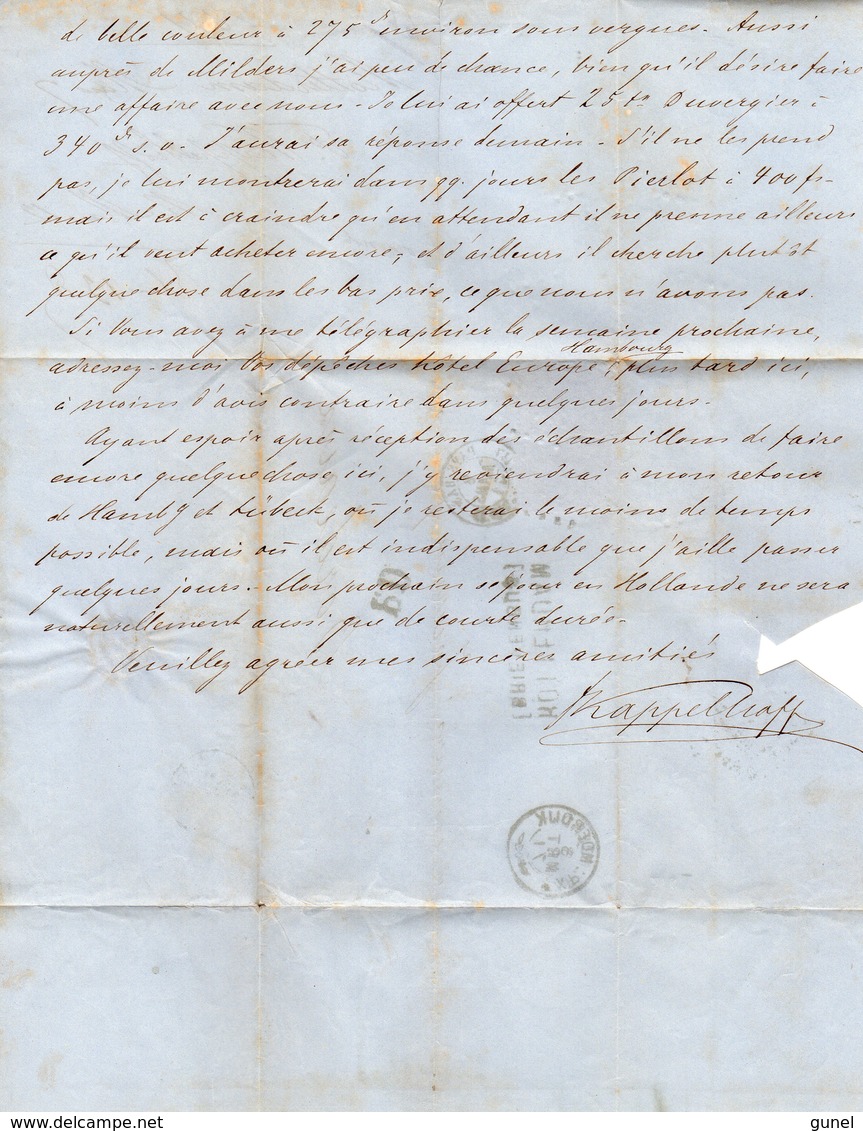 de belle couleur à 275 fr environ sous vergues. Aussi
auprès de Milders j'ai peu de chance, bien qu'il désire faire
une affaire avec nous. Je lui ai offert 25 tx Duvergier à
340 fr s.v. J'aurai sa réponse demain. S'il ne les prend
pas, je lui montrerai dans qq. jours les Pierlot à 400 fr
mais il est à craindre qu'en attendant il ne prenne ailleurs
ce qu'il veut acheter encore, et d'ailleurs il cherche plutôt
quelque chose dans les bas prix, ce que nous n'avons pas.
Si Vous avez à me télégraphier la semaine prochaine,
adressez-moi Vos dépêches hôtel Europe Hambourg, plus tard ici,
à moins d'avis contraire dans quelques jours.
Ayant espoir après réception des échantillons de faire
encore quelque chose ici, j'y reviendrai à mon retour
de Hambg et Lübeck, où je resterai le moins de temps
possible, mais où il est indispensable que j'aille passer
quelques jours. Mon prochain séjour en Hollande ne sera
naturellement aussi que de courte durée.
Veuillez agréer mes sincères amitiés
Kappelhoff
ROTTERDAM
MOERDIJK
gunel